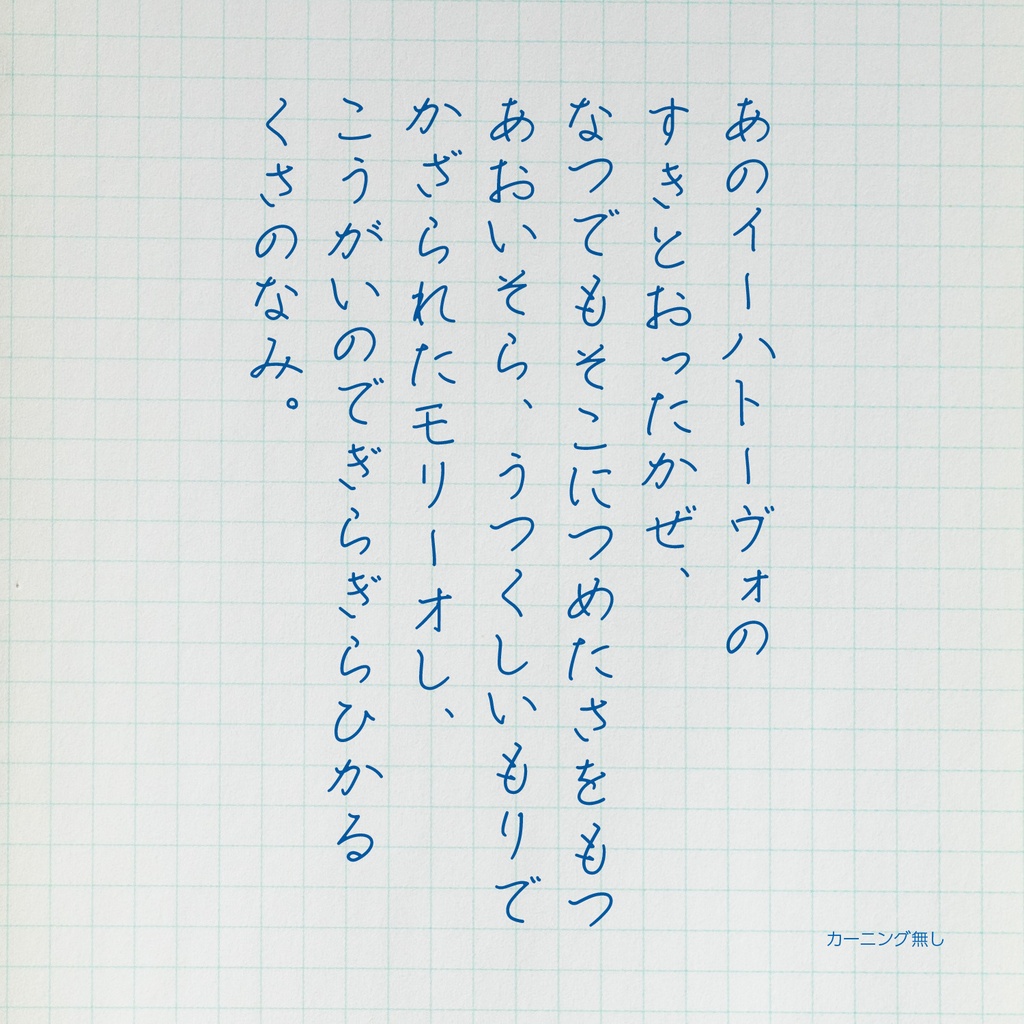 あのイーハトーヴォの
すきとおったかぜ、
なつでもそこにつめたさをもつ
あおいそら、うつくしいもりで
かざられたモリーオし、
こうがいのでぎらぎらひかる
くさのなみ。
カーニング無し